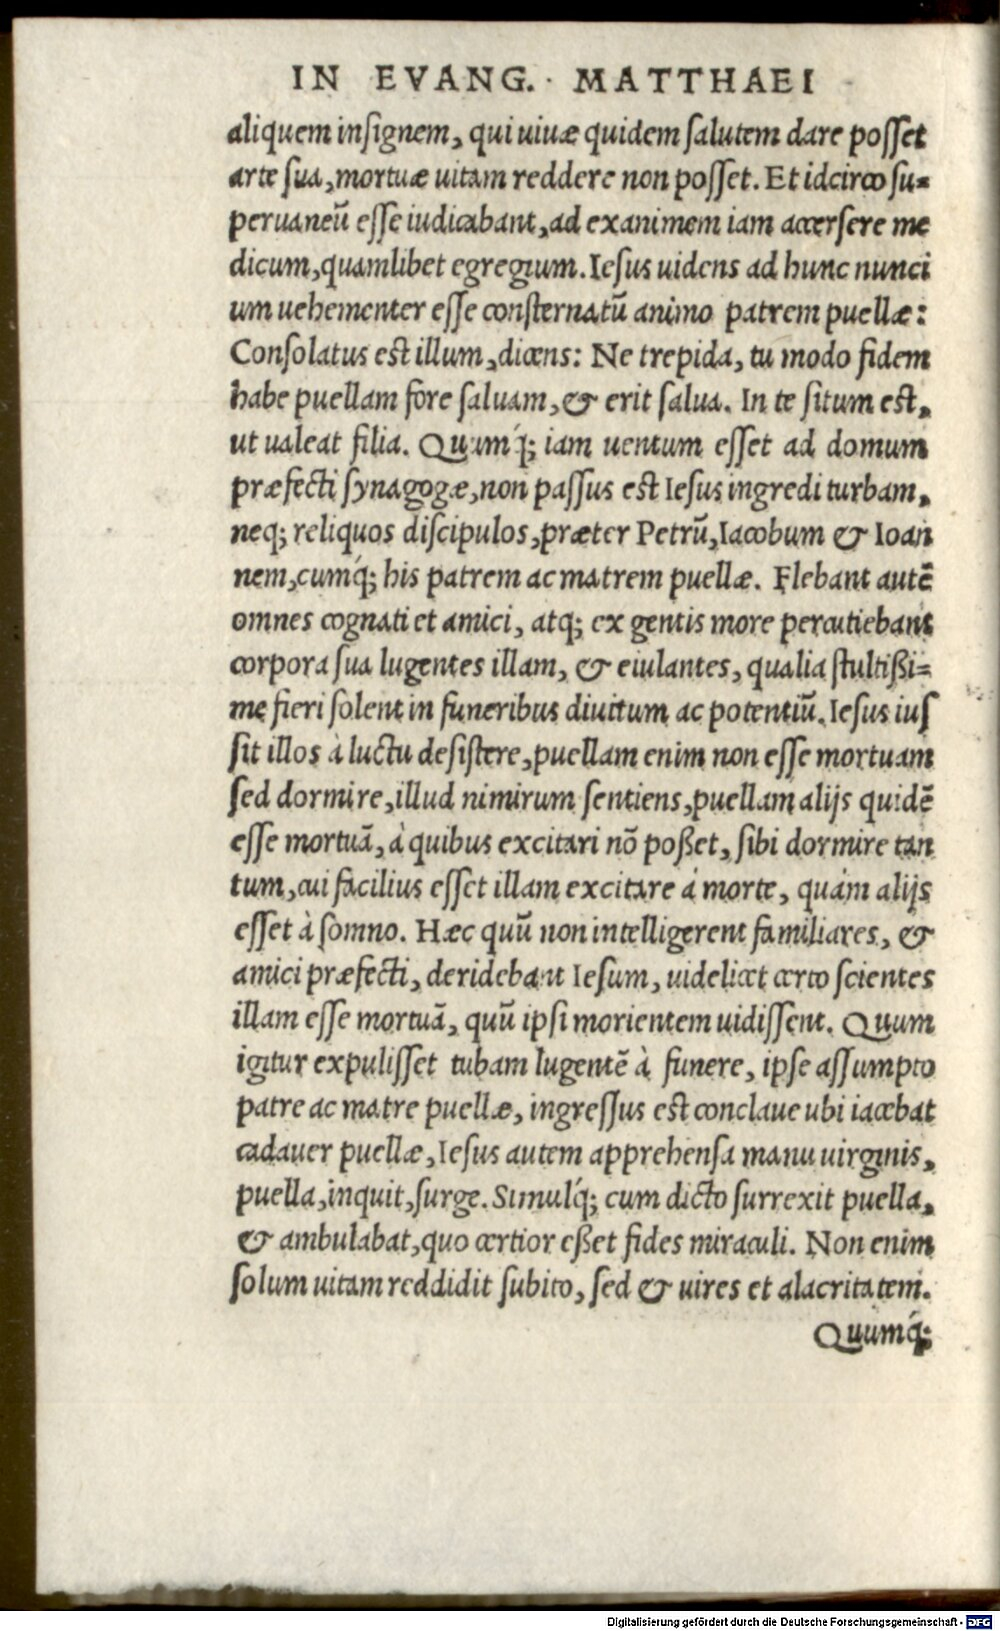 IN EVANG. MATTHAEI
aliquem insignem, qui uiuæ quidem salutem dare posset
arte sua, mortuæ uitam reddere non posset. Et idcirco su=
peruaneū esse iudicabant, ad exanimem iam accersere me
dicum, quamlibet egregium. Iesus uidens ad hunc nunci
um uehementer esse consternatū animo patrem puellæ:
Consolatus est illum, dicens: Ne trepida, tu modo fidem
habe puellam fore saluam, & erit salua. In te situm est,
ut ualeat filia. Quumq́; iam uentum esset ad domum
præfecti synagogæ, non passus est Iesus ingredi turbam,
neq; reliquos discipulos, præter Petrū, Iacobum & Ioan
nem, cumq́; his patrem ac matrem puellæ. Flebant autē
omnes cognati et amici, atq; ex gentis more percutiebant
corpora sua lugentes illam, & eiulantes, qualia stultißi=
me fieri solent in funeribus diuitum ac potentiū. Iesus ius
sit illos à luctu desistere, puellam enim non esse mortuam
sed dormire, illud nimirum sentiens, puellam alijs quidē
esse mortuā, à quibus excitari nō poßet, sibi dormire tan
tum, cui facilius esset illam excitare á morte, quám alijs
esset à somno. Hæc quū non intelligerent familiares, &
amici præfecti, deridebant Iesum, uidelicet certo scientes
illam esse mortuā, quū ipsi morientem uidissent. Quum
igitur expulisset tubam lugentē à funere, ipse assumpto
patre ac matre puellæ, ingressus est conclaue ubi iacebat
cadauer puellæ, Iesus autem apprehensa manu uirginis,
puella, inquit, surge. Simulq́; cum dicto surrexit puella,
& ambulabat, quo certior eßet fides miraculi. Non enim
solum uitam reddidit subito, sed & uires et alacritatem.
Quumq́;
Digitalisierung gefördert durch die Deutsche Forschungsgemeinschaft - DFG